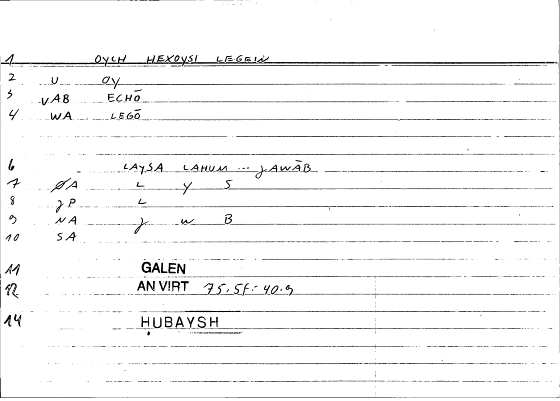 1 OYCH HEXOYSI LEGEIN
2 U OY
3 VAB ECHŌ
4 WA LEGŌ
6 LAYSA LAHUM ... JAWĀB
7 ØA L Y S
8 JP L
9 NA J W B
10 SA
11 GALEN
12 AN VIRT 75.5f.-40.9
14 ḤUBAYSH